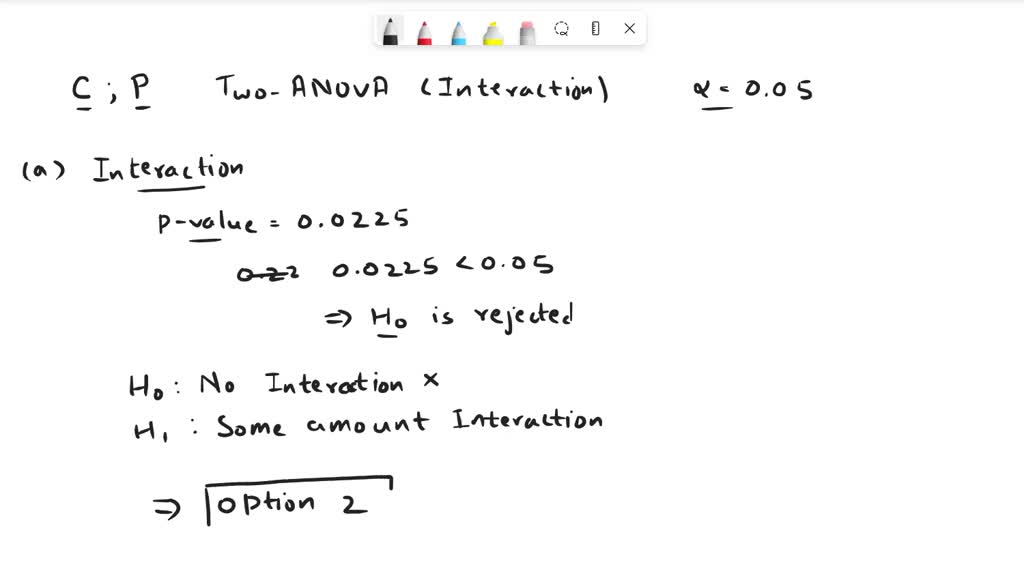 C ; P Two-ANOVA (Interaction) α = 0.05
(a) Interaction
P-value = 0.0225
0.22 0.0225 < 0.05
⇒ H₀ is rejected
H₀ : No Interaction ×
H₁ : Some amount Interaction
⇒ Option 2